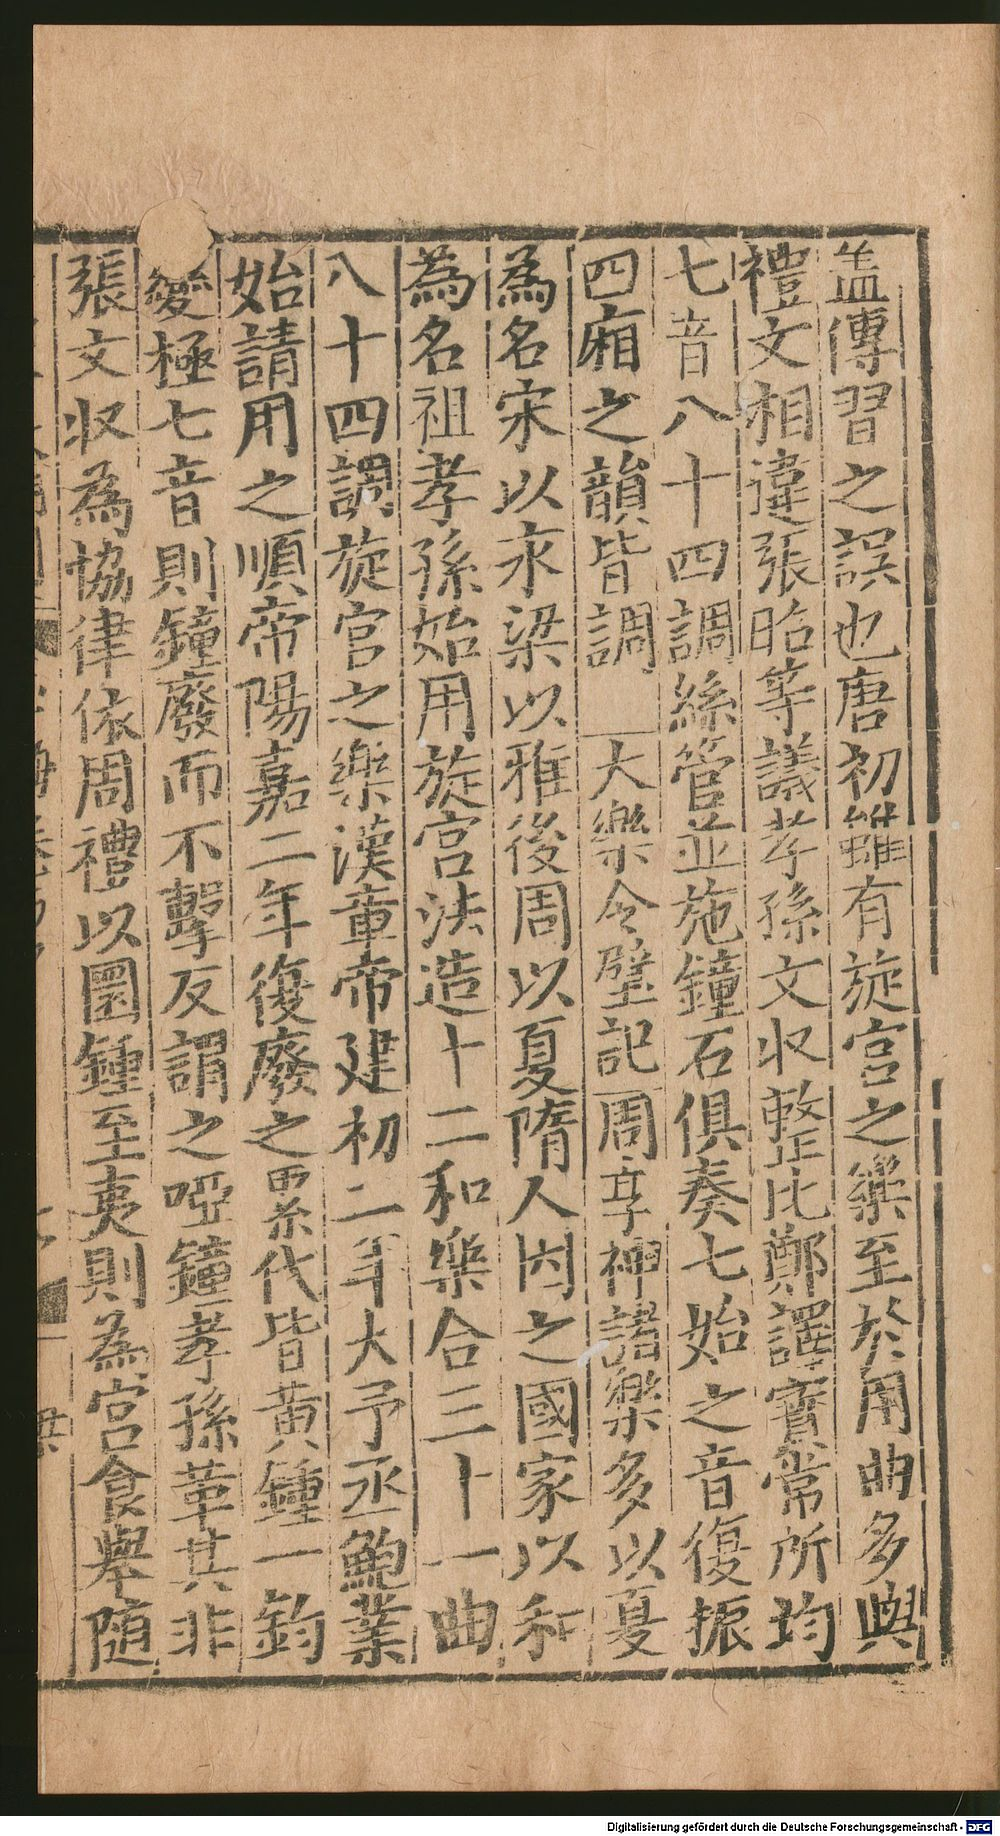 盖傳習之誤也唐初雖有旋宫之樂至於用曲多與
禮文相違張昭等議孝孫文収整比鄭譯寶常所均
七音八十四調絲管並施鐘石俱奏七始之音復振
四廂之韻皆調　大樂令壁記周享神諸樂多以夏
為名宋以永梁以雅後周以夏隋人因之國家以和
為名祖孝孫始用旋宫法造十二和樂合三十一曲
八十四調旋宫之樂漢章帝建初二年大予丞鮑業
始請用之順帝陽嘉二年復廢之累代皆黄鍾一鈞
變極七音則鐘廢而不擊反謂之啞鐘孝孫革其非
張文収為協律依周禮以圜鍾至夷則為宫食舉随
Digitalisierung gefördert durch die Deutsche Forschungsgemeinschaft - DFG